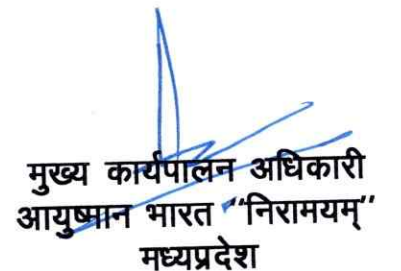 मुख्य कार्यपालन अधिकारी
आयुष्मान भारत "निरामयम्"
मध्यप्रदेश